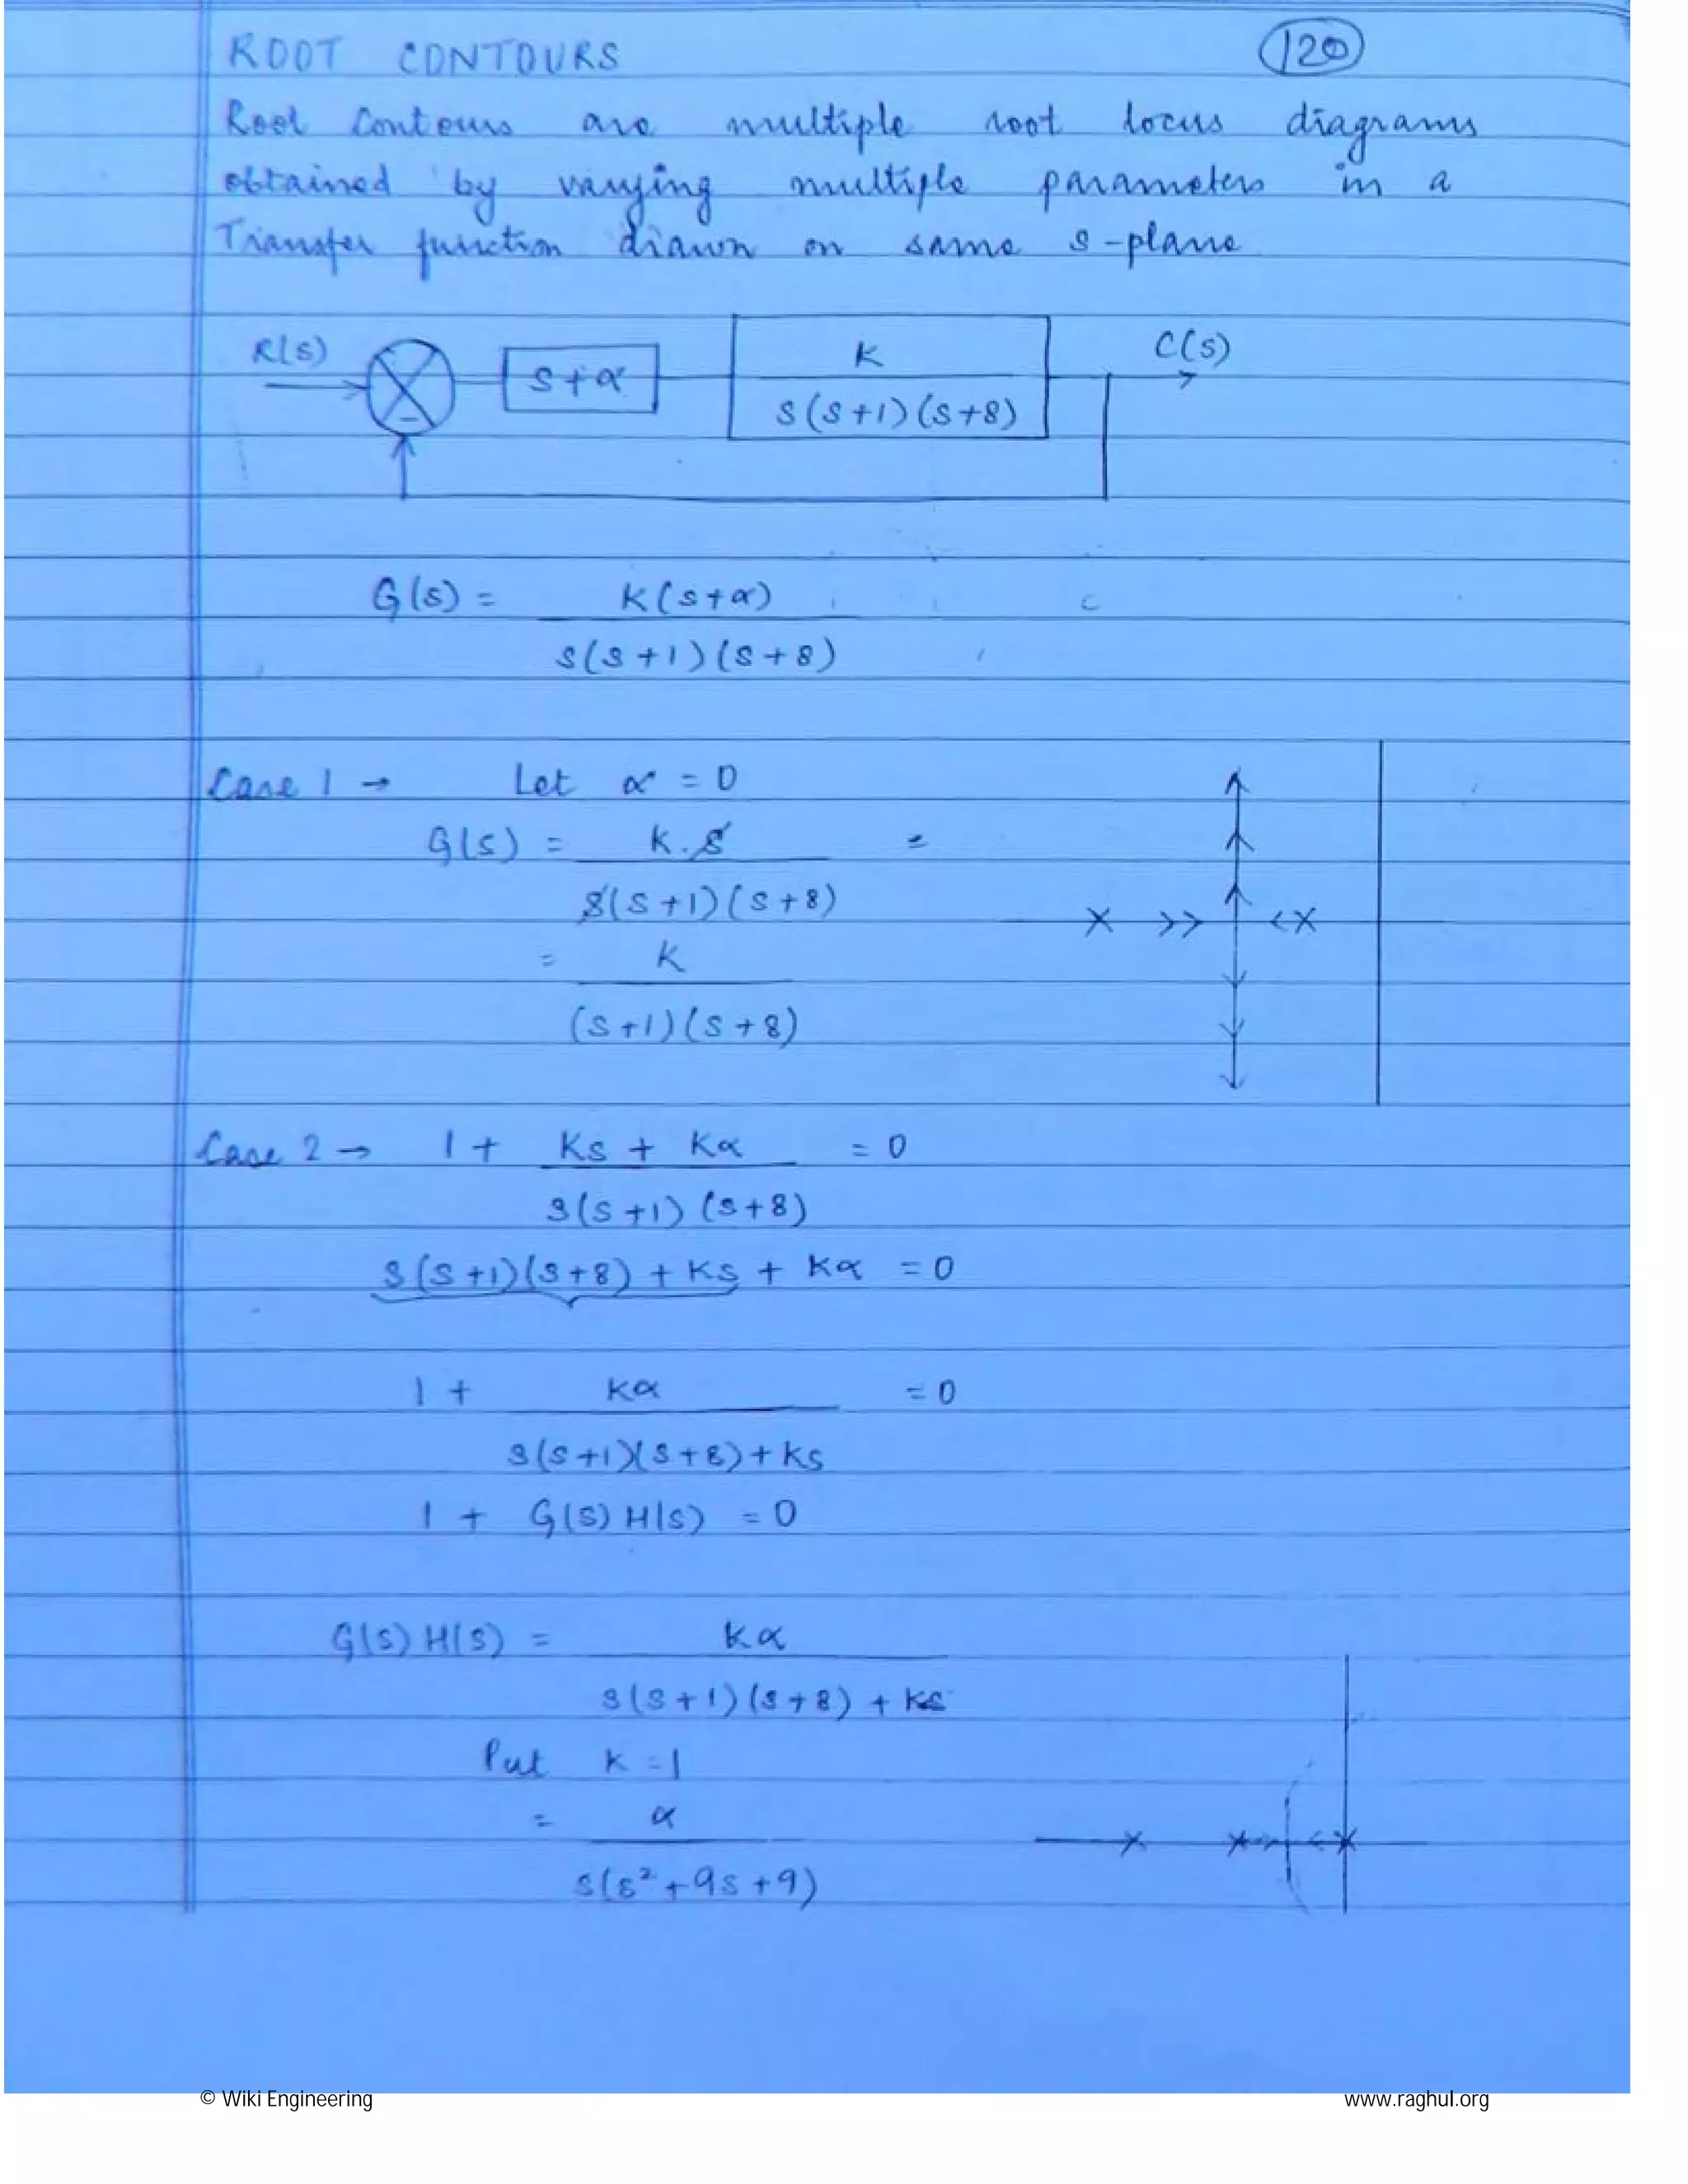 ROOT CONTOURS
120
Root Contours are multiple root locus diagrams
obtained by varying multiple parameters in a
Transfer function drawn on same s-plane
R(s) s+α K C(s)
s(s+1)(s+8)
-
G(s) = K(s+α)
s(s+1)(s+8)
Case 1 → Let α = 0
G(s) = K.s =
s(s+1)(s+8)
= K
(s+1)(s+8)
Case 2 → 1 + Ks + Kα = 0
s(s+1)(s+8)
s(s+1)(s+8) + Ks + Kα = 0
1 + Kα = 0
s(s+1)(s+8)+Ks
1 + G(s) H(s) = 0
G(s) H(s) = Kα
s(s+1)(s+8) + Ks
Put K = 1
= α
s(s²+9s+9)
© Wiki Engineering
www.raghul.org